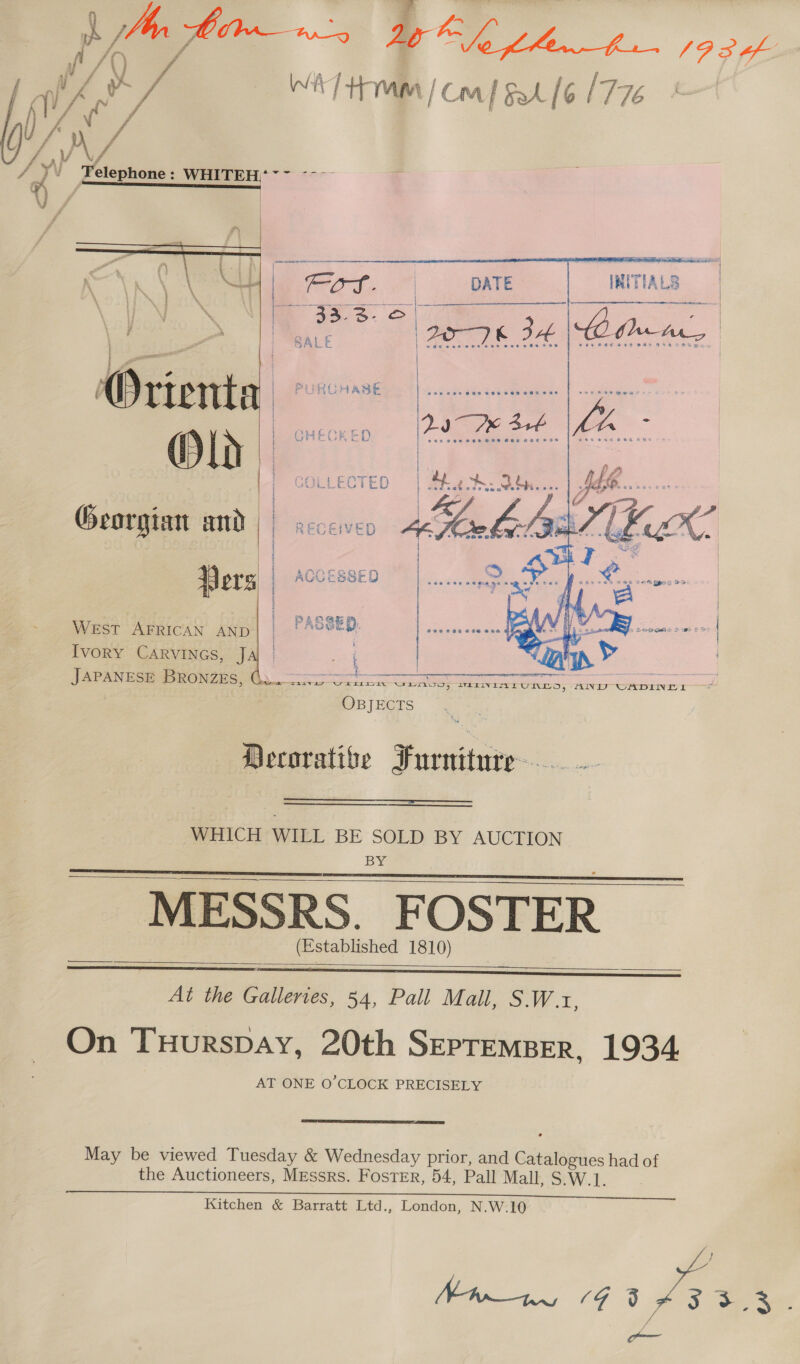 20th September 1934
WA/HMM/CM/Sal/6/776
Telephone : WHITEH
Fos. DATE INITIALS
33.3.0
SALE
Orienta PURCHASE
Old CHECKED
COLLECTED
Georgian and RECEIVED
Pers ACCESSED
WEST AFRICAN AND PASSED.
IVORY CARVINGS, JA
JAPANESE BRONZES, MINIATURES, AND CABINET
OBJECTS
Decorative Furniture
WHICH WILL BE SOLD BY AUCTION
BY
MESSRS. FOSTER
(Established 1810)
At the Galleries, 54, Pall Mall, S.W.1,
On THURSDAY, 20th SEPTEMBER, 1934
AT ONE O'CLOCK PRECISELY
May be viewed Tuesday & Wednesday prior, and Catalogues had of
the Auctioneers, MESSRS. FOSTER, 54, Pall Mall, S.W.1.
Kitchen & Barratt Ltd., London, N.W.10
33.3.